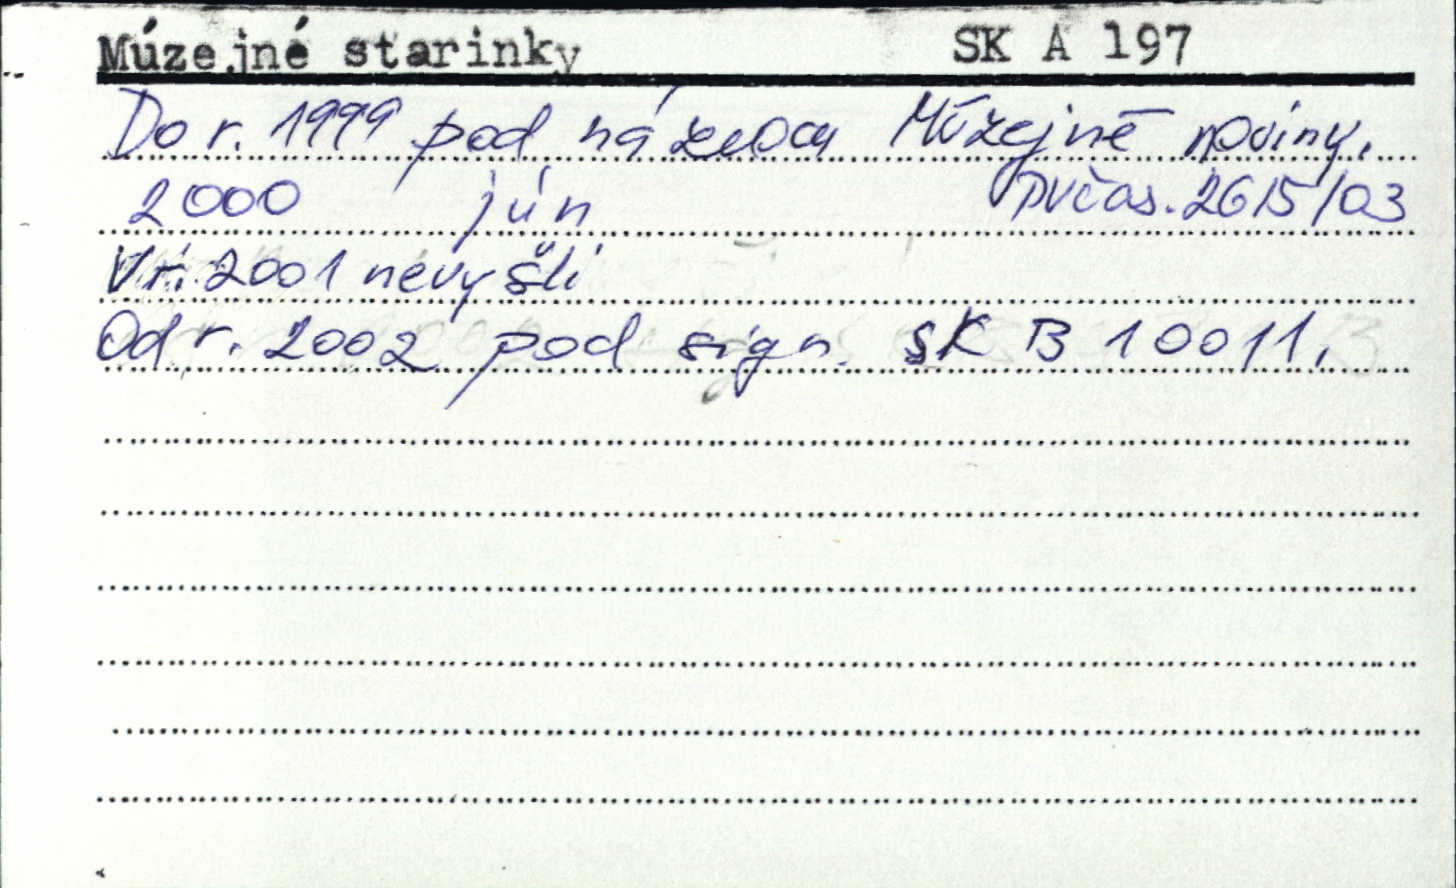 Múzejné starinky SK A 197
Do r. 1999 pod názvom Múzejné noviny.
2000 jún PVčas. 2615/03
V r. 2001 nevyšli
Od r. 2002 pod sign. SK B 10011.